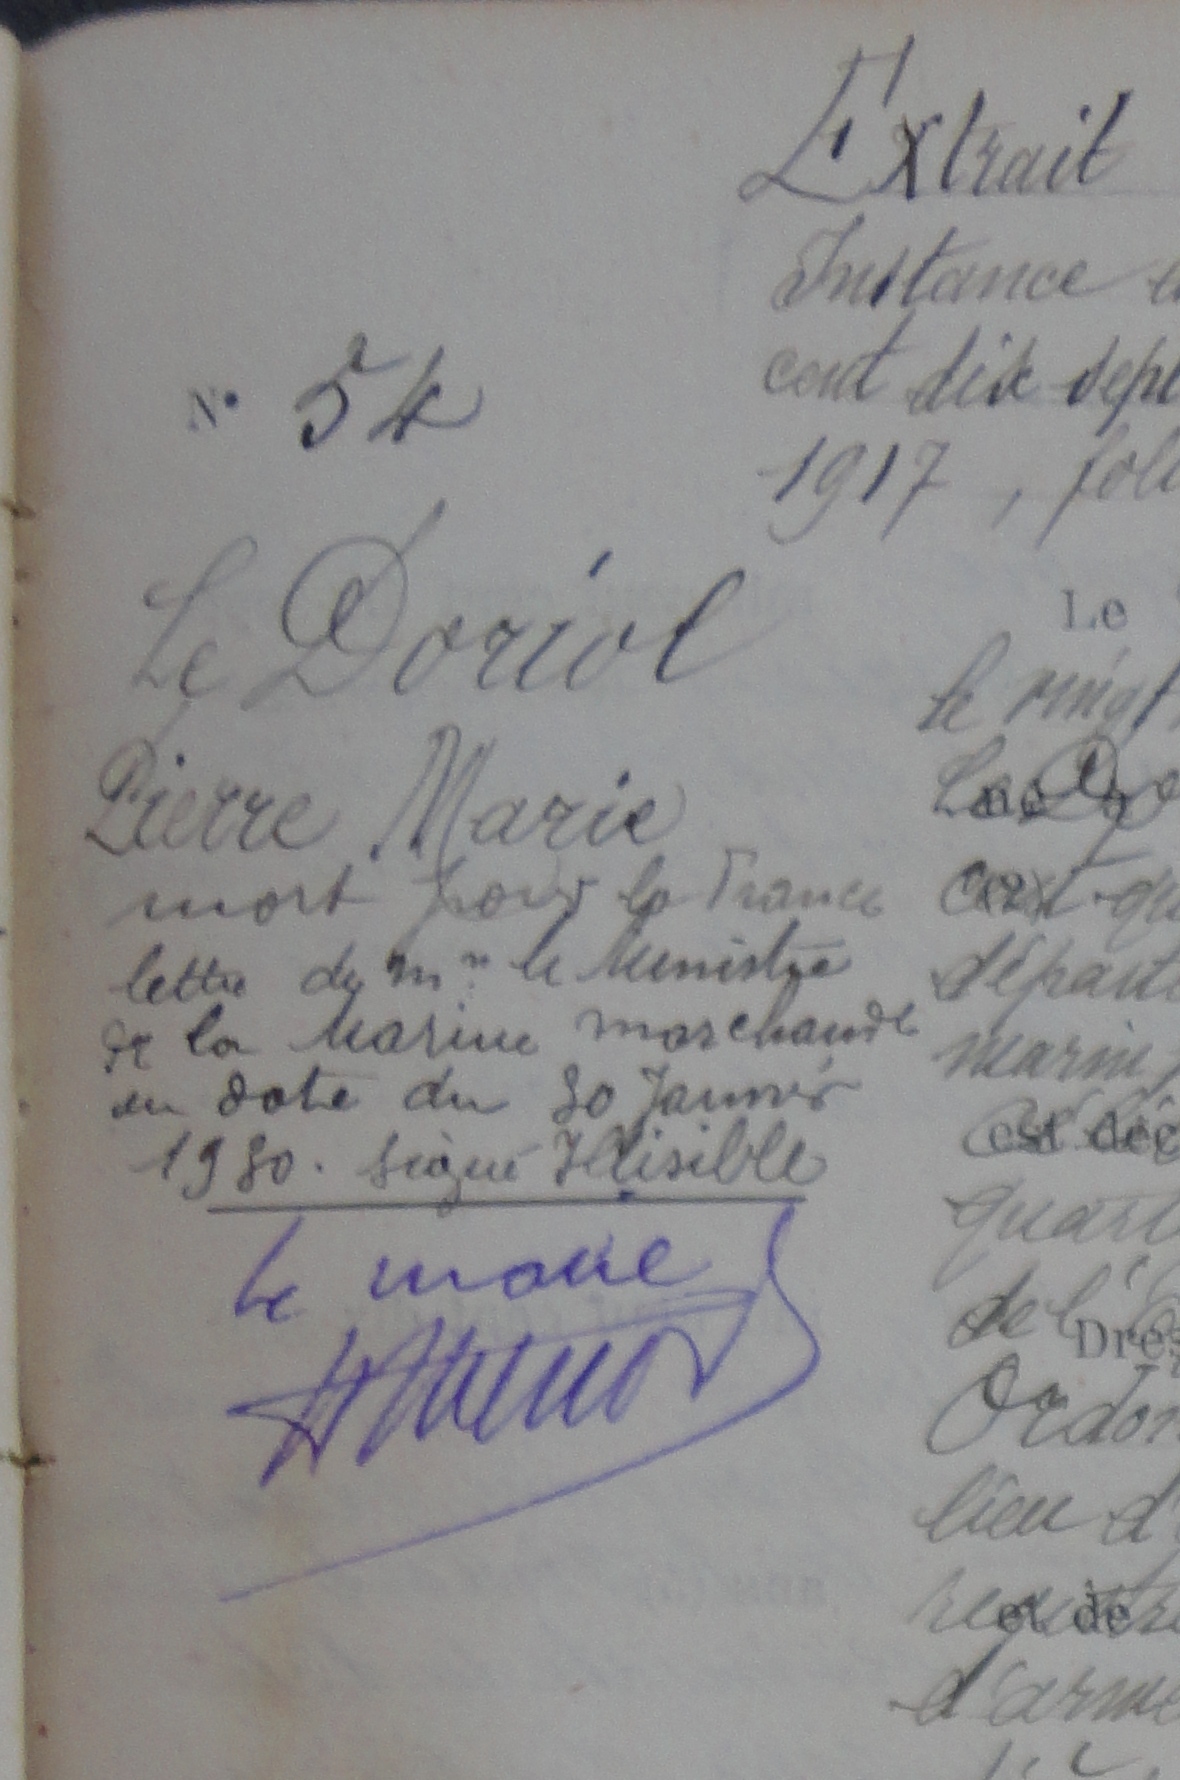 Extrait
Instance
cent dix-sept
1917, foli
N° 54
Le Doriol
Pierre Marie
mort pour la France
lettre de Mr le Ministre
de la Marine marchande
en date du 30 Janvier
1930. Signé Illisible
Le maire
Le
le vingt
Le Do
né
cent qu
départ
marin,
est déc
quart
de l'
Dres
Ordon
lieu d'
et de
d'arme